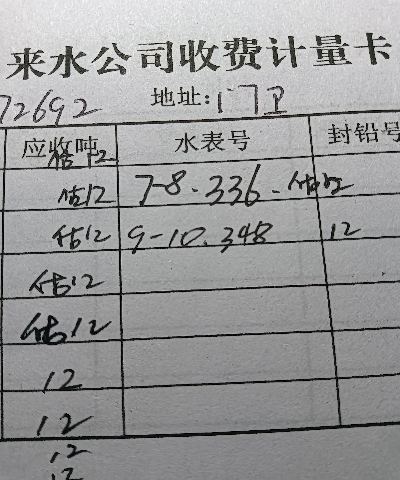 来水公司收费计量卡
72692 地址: 17卫
应收吨 水表号 封铅号
估12
估12 7-8.336.估12
估12 9-10.348 12
估12
估12
12
12
12
12